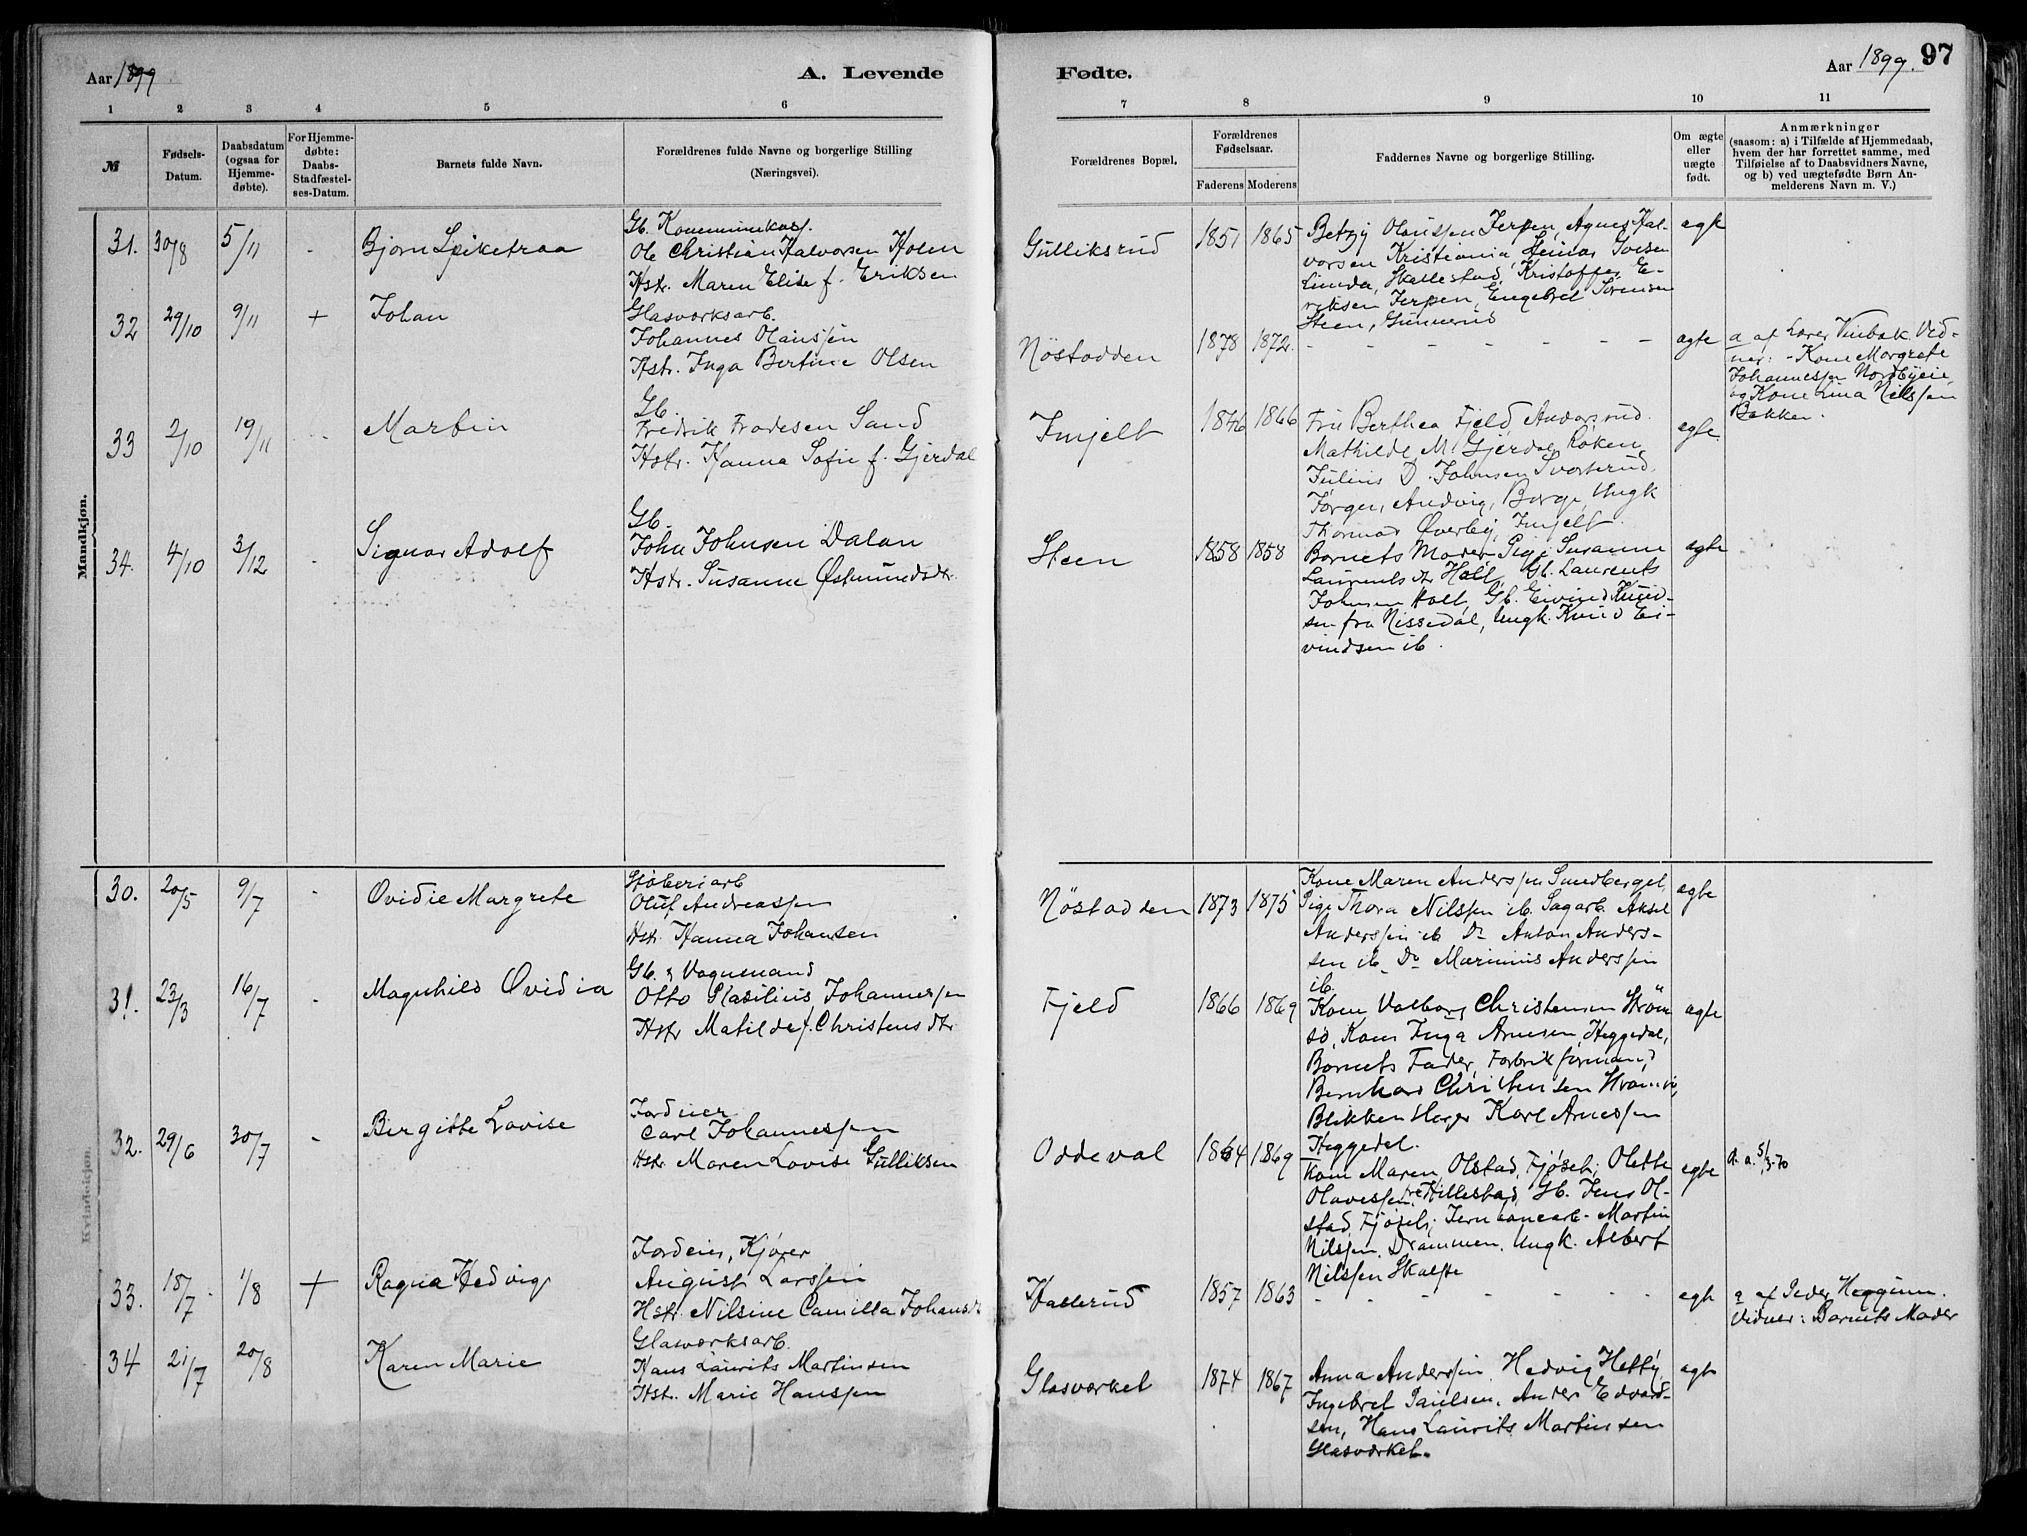 Aar 1899
A. Levende
Fødte.
Aar 1899.
97
1 2 3 4 5 6 7 8 9 10 11
№
Fødsels-
Datum.
Daabsdatum
(ogsaa for
Hjemme-
døbte).
For Hjemme-
døbte:
Daabs-
Stadfæstel-
ses-Datum.
Barnets fulde Navn.
Forældrenes fulde Navne og borgerlige Stilling
(Næringsvei).
Forældrenes Bopæl.
Forældrenes
Fødselsaar.
Faderens Moderens
Faddernes Navne og borgerlige Stilling.
Om ægte
eller
uægte
født.
Anmærkninger
(saasom: a) i Tilfælde af Hjemmedaab,
hvem der har forrettet samme, med
Tilføielse af to Daabsvidners Navne,
og b) ved uægtefødte Børn An-
melderens Navn m. V.)
Mandkjøn.
31. 30/8 5/11 - Bjørn Spiketraa
Gb. Kommunekass.
Ole Christian Halvorsen Holm
Hstr. Maren Elise f. Eriksen
Gulliksrud 1851 1865
Betzy Olaussen Jerpen, Agnes Hal-
vorsen Kristiania
Skallestad, Kristoffer E-
riksen Jerpen, Engebret Sørensen
Steen, Gunnerud
ægte
32 29/10 9/11 + Johan
Glasværksarb.
Johannes Olaussen
Hstr. Inga Bertine Olsen
Nøstodden 1878 1872. - - - - - - - ægte
a af Lærer Vinbæk. Vid-
ner: - Kone Margrete
Johannessen Nordbyeie,
og Kone Lina Nilssen
Bakken.
33 2/10 19/11 - Martin
Gb.
Fredrik Frodesen Sand
Hstr. Hanna Sofie f. Gjerdal
Injelt 1846 1866
Fru Berthea Fjeld Andorsrud
Mathilde M. Gjerdal, Røken,
Julius D. Johnsen
Jørgen Andvig, Borge, Ungk
Thormod Øverby, Injelt.
ægte.
34. 4/10 3/12 - Signar Adolf
Gb.
John Johnsen Dalan
Hstr. Susanne Østmundsdtr.
Steen 1858 1858
Barnets Moder Pige Susanne
Laurentsdtr Holt, Gb. Laurents
Johnsen Holt, Gb. Eivind Knud-
sen fra Nissedal, Ungk. Knud Ei-
vindsen ib.
ægte
Kvindekjøn.
30. 20/5 9/7 - Ovidie Margrete
Støberiarb
Oluf Andreassen
Hstr. Hanna Johansen
Nøstodden 1873 1875
Kone Maren Anderssen Sundberget,
Pige Thora Nilssen ib. Sagarb. Aksel
Anderssen ib Do Anton Anders-
sen ib Do Marinius Anderssen
ib.
ægte
31. 23/3 16/7 - Magnhild Ovidia
Gb. & Vognmand
Otto Basilius Johannessen
Hstr Matilde f. Christensdtr
Fjeld 1866 1869
Kone Valborg Christensen Strøm
sø, Kone Inga Arnesen, Heggedal,
Barnets Fader, Fabrikformand
Bernhard Christensen Strømsø,
Blikkenslager Karl Arnessen
Heggedal.
ægte
32. 29/6 30/7 - Birgitte Lovise
Jordeier
Carl Johannessen
Hstr. Maren Lovise Gulliksen
Oddeval 1864 1869
Kone Maren Olstad, Fjøseb, Olette
Olavessen Hillestad, Gb. Jens Ol-
stad Fjøseb, Jernbanearb. Martin
Nilssen, Drammen, Ungk. Albert
Nilssen Skalstø
ægte
d. a. 5/3-70
33. 18/7 1/8 + Ragna Hedvig
Jordeier, Kjører
August Larssen
Hstr. Nilsine Camilla Johansdtr
Hallerud 1857 1863 - - - - - - - ægte
a af Peder Heggum.
Vidner: Barnets Moder
34 21/7 20/8 Karen Marie
Glasværksarb.
Hans Laurits Martinsen
Hstr. Marie Hanssen
Glasværket 1874 1867
Anna Anderssen, Hedvig Hetty,
Ingebret Paulsen, Anders Edvard-
sen, Hans Laurits Martinsen
Glasværket.
ægte